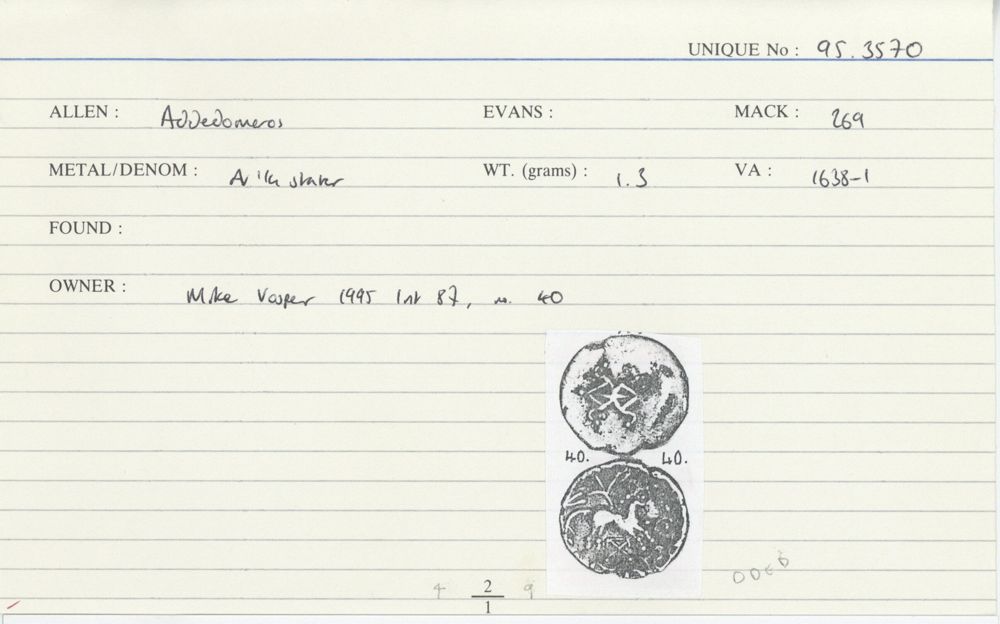 UNIQUE No : 95.3570
ALLEN : Addedomaros EVANS : MACK : 269
METAL/DENOM : WT. (grams) : 1.3 VA : 1638-1
FOUND :
OWNER : Mike Vosper 1995 87, no. 40
40. 40.
2
4 9
1